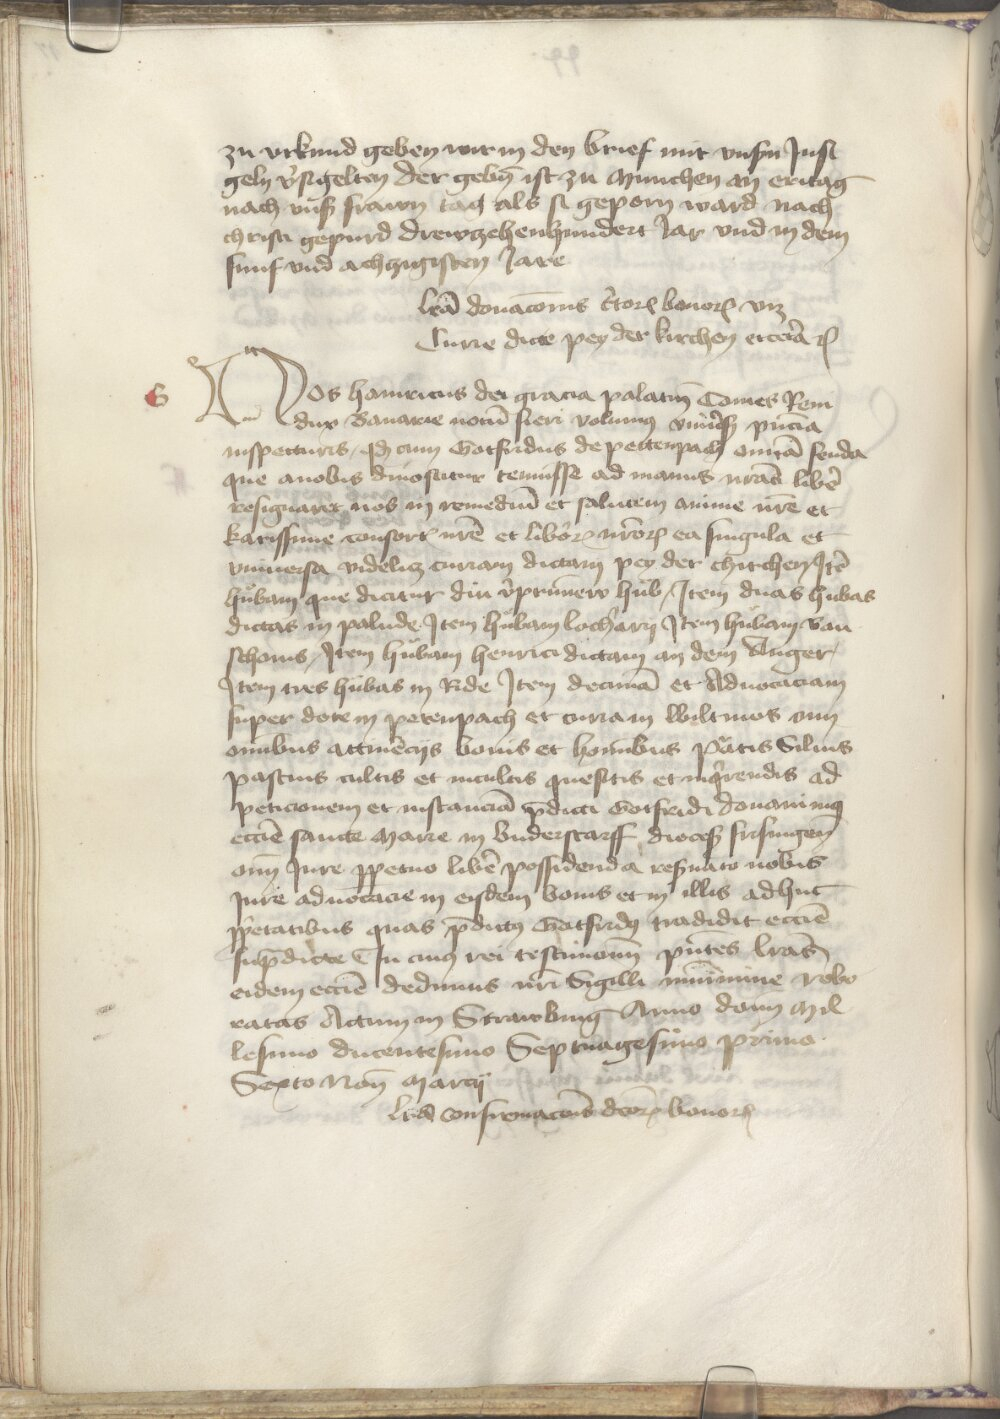 zu vrkund geben wir in den brief mit vnsern Insi
geln v̾sigelten Der gebn̄ ist zu Munchen an eritag
nach vnser frawn tag als si geporn ward nach
christi gepurd drewzehenhundert Jar vnd in dem
funf vnd achzigisten Jare
Lrā donacōnis c̄torꝝ bonorꝝ vꝫ
Curie dicte pey der kirchen etcetā rꝝ
G
Nos Hainricus dei gracia palatin̄ Comes Reni
dux Bauarie notū fieri volumus vniūsꝫ pn̄cia
inspecturis qꝫ cum Gotfridus de pettenpach om̄iā feuda
que a nobis dinoscitur tenuisse ad manus nr̄as libē
resignaret nos in remediū et salutem anime nr̄e et
karissime consortꝭ nr̄e et liborꝝ nr̄orꝝ ea singula et
vniuersa videlicꝫ curiam dictam pey der chirchen Itē
hůbam que dicitur diu v̄prunnew hůb Item duas hubas
dictas in palude Item hůbam locharij Item hůbam Van
schonis Item hůbam henrici dictam an dem Anger
Item tres hůbas in Ride Item decimā et Aduocaciam
super dote in petenpach et curiam Wiltmos cum
om̄ibus attinēcijs bonis et hom̄ibus p̄atis Siluis
pascuis cultis et incultis quesitis et inq̄rendis ad
peticionem et instanciā p̄dicti Gotfridi donauimꝰ
ecc̄ie sancte Marie in Vnderstarff dioceꝫ frisingen̄
om̄i Jure ꝑpetuo libē possidenda rẹs̄uato nobis
Jure aduocacie in eisdem bonis et in illis adhuc
ꝓp̄etatibus quas p̄dictꝰ Gotfridꝰ tradidit ecc̄ie
sup̄dicte In cuiꝰ rei testimoniū pn̄tes lrās
eidem ecc̄ie dedimus nr̄i Sigilli munimine robo
ratas Actum in Strawbing Anno dom̄ Mil
lesimo ducentesimo Septuagesimo primo
Sexto Non̄ Marcij
Lrā confirmacōnis dc̄orꝝ bonorꝝ